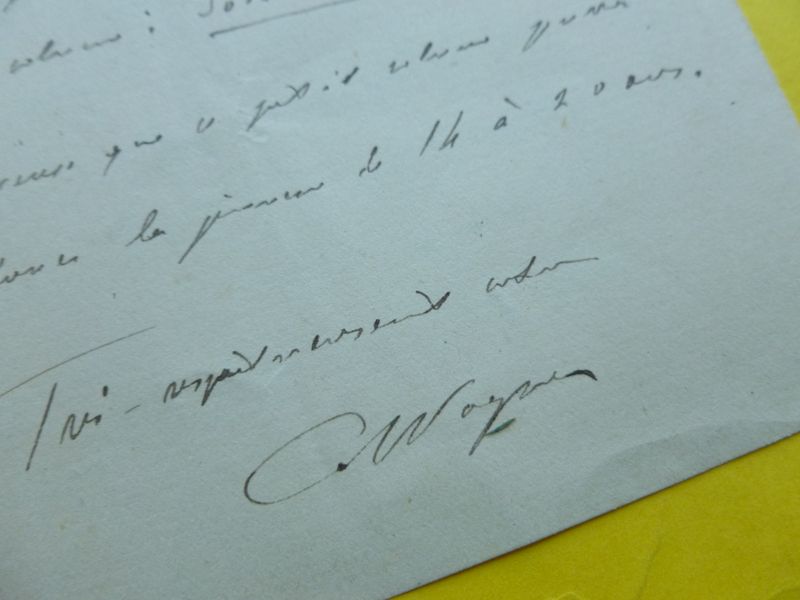 volume :
que ce petit volume
la jeunesse de 14 à 20 ans.
Très-respectueusement votre
C. Wagner